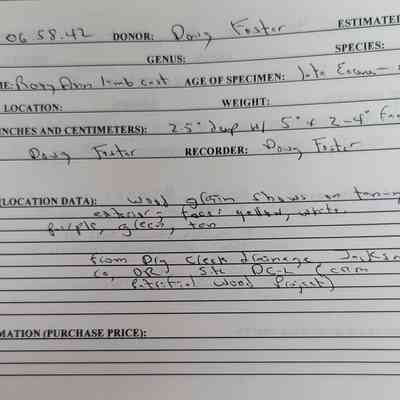 06.58.42 DONOR: Doug Foster ESTIMATED
GENUS: SPECIES:
ME: Roxy Ann limb cast AGE OF SPECIMEN: late Eocene -
LOCATION: WEIGHT:
INCHES AND CENTIMETERS): 2.5" deep w/ 5" x 2-4" face
Doug Foster RECORDER: Doug Foster
(LOCATION DATA): wood grain shows on tan
exterior; face: yellow, white,
purple, green, tan
from Dry Creek drainage, Jackson
Co, OR site DC-2 (
Petrified Wood Project)
MATION (PURCHASE PRICE):